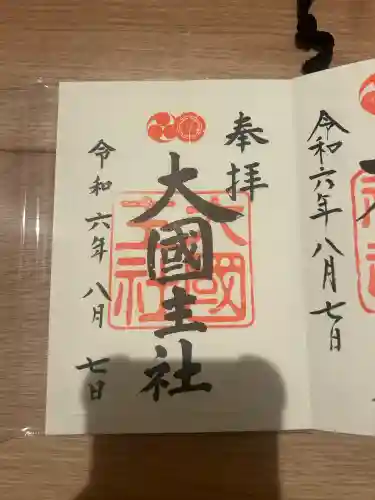 奉拝
大國主社
大國主社
令和六年 八月 七日
令和六年 八月 七日